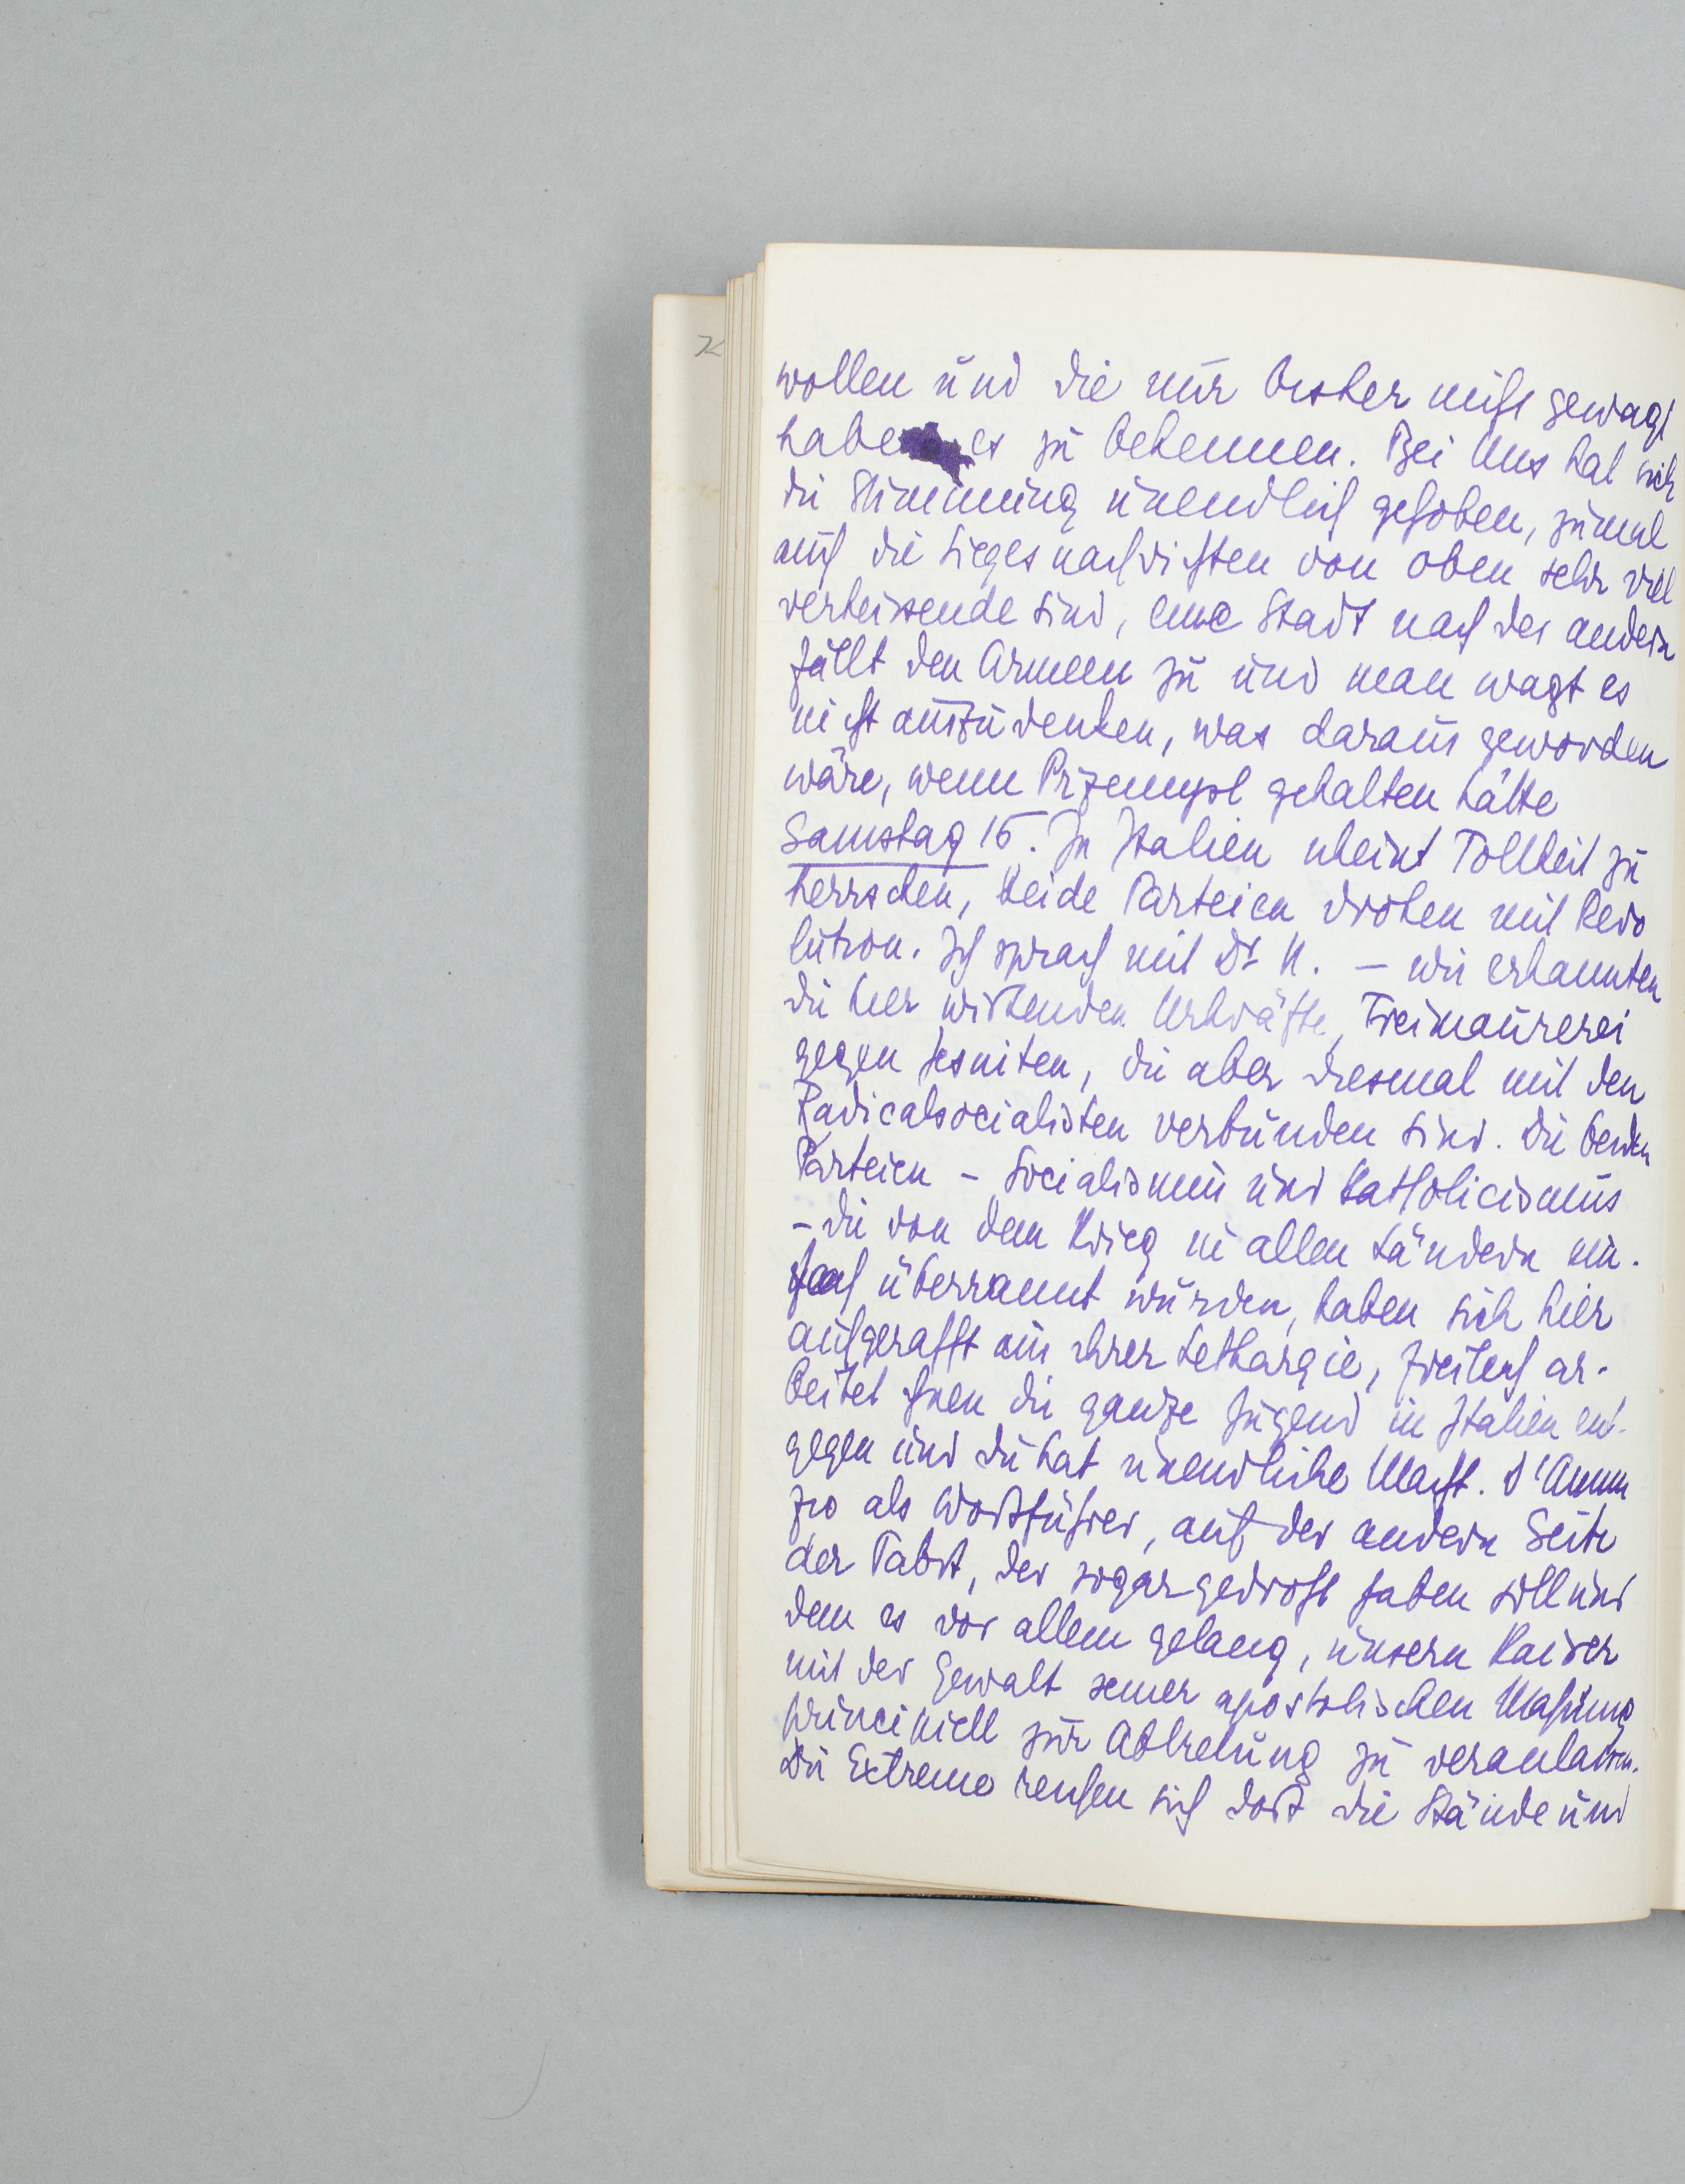 wollen und die nur bisher nicht gewagt
haben es zu bekennen. Bei Uns hat sich
die Stimmung unendlich gehoben, zumal
auch die Siegesnachrichten von oben sehr viel
verheissende sind, eine Stadt nach der andern
fällt den Armeen zu und man wagt es
nicht auszudenken, was daraus geworden
wäre, wenn Przemysl gehalten hätte
Samstag 15. In Italien scheint Tollheit zu
herrschen, beide Parteien drohen mit Revo
lution. Ich sprach mit Dr K. – wir erkannten
die hier wirkenden Urkräfte, Freimaurerei
gegen Jesuiten, die aber diesmal mit den
Radicalsocialisten verbunden sind. Die beiden
Parteien – Socialismus und Katholicismus
– die von dem Krieg in allen Ländern ein-
fach überrannt wurden, haben sich hier
aufgerafft aus ihrer Lethargie, freilich ar-
beitet ihnen die ganze Jugend in Italien ent-
gegen und die hat unendliche Macht. D'Annun
zio als Wortführer, auf der andern Seite
der Pabst, der sogar gedroht haben soll und
dem es vor allem gelang, unsern Kaiser
mit der Gewalt seiner apostolischen Mahnung
principiell zur Abtretung zu veranlassen.
Die Extreme reichen sich dort die Hände und